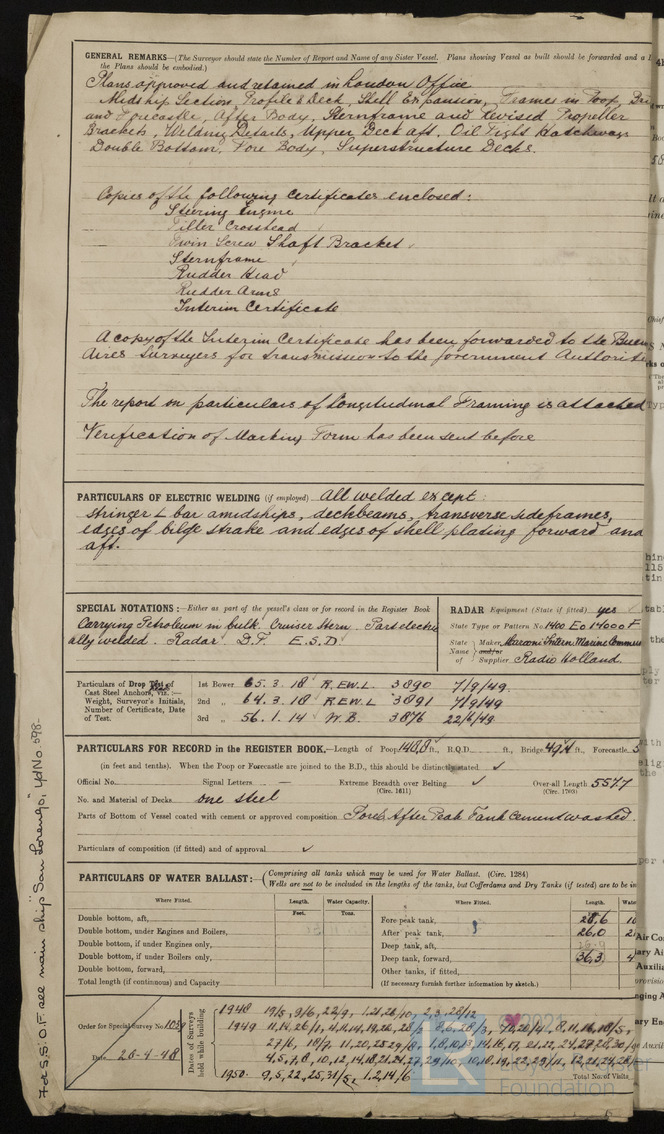 GENERAL REMARKS—(The Surveyor should state the Number of Report and Name of any Sister Vessel. Plans showing Vessel as built should be forwarded and a
the Plans should be embodied.)
Plans approved and retained in London Office
Midship Section, Profile & Deck, Shell Expansion, Frames in Poop,
and Forecastle, After Body, Sternframe and Revised Propeller
Brackets, Welding Details, Upper Deck aft, Oil Tight Hatchways
Double Bottom, Fore Body, Superstructure Decks.
Copies of the following Certificates enclosed:
Steering Engine
Tiller Crosshead
Twin Screw Shaft Bracket
Sternframe
Rudder Head
Rudder Arms
Interim Certificate
A copy of the Interim Certificate has been forwarded to the
Aires Surveyors for transmission to the Government
The report on particulars of Longitudinal Framing is attached
Verification of Marking Form has been sent before
PARTICULARS OF ELECTRIC WELDING (if employed) All welded except:
stringer L bar amidships, deckbeams, transverse sideframes,
edges of bilge strake and edges of shell plating forward and
aft.
SPECIAL NOTATIONS:—Either as part of the vessel's class or for record in the Register Book
Carrying Petroleum in bulk. Cruiser Stern. Part electric
ally welded. Radar D.F. E.S.D.
RADAR Equipment (State if fitted) yes
State Type or Pattern No. 1400 E 14000 F
State Name of Maker and/or Supplier Marconi Intern. Marine
Radio Holland.
Particulars of Drop Test of Cast Steel Anchors, viz.:— Weight, Surveyor's Initials, Number of Certificate, Date of Test.
1st Bower 65.3.18 R.E.W.L. 3890 7/9/49.
2nd „ 64.3.18 R.E.W.L 3891 7/9/49
3rd „ 56.1.14 W.B. 3876 22/6/49
PARTICULARS FOR RECORD in the REGISTER BOOK.—Length of Poop ft., R.Q.D. ft., Bridge 49.4 ft., Forecastle
(in feet and tenths). When the Poop or Forecastle are joined to the B.D., this should be distinctly stated ✓
Official No. Signal Letters — Extreme Breadth over Belting ✓ Over-all Length 557.7
(Circ. 1611) (Circ. 1703)
No. and Material of Decks one steel
Parts of Bottom of Vessel coated with cement or approved composition Fore & After Peak Tank Cementwashed.
Particulars of composition (if fitted) and of approval ✓
PARTICULARS OF WATER BALLAST:— (Comprising all tanks which may be used for Water Ballast. (Circ. 1284)
Wells are not to be included in the lengths of the tanks, but Cofferdams and Dry Tanks (if tested) are to be
Where Fitted. Length. Water Capacity. Where Fitted. Length.
Feet. Tons.
Double bottom, aft,
Double bottom, under Engines and Boilers,
Double bottom, if under Engines only,
Double bottom, if under Boilers only,
Double bottom, forward,
Total length (if continuous) and Capacity
Fore peak tank, 28,6
After peak tank, 26,0
Deep tank, aft,
Deep tank, forward, 36,3
Other tanks, if fitted,
(If necessary furnish further information by sketch.)
Order for Special Survey No. 1059
Date 26-4-48
Dates of Surveys held while building
1948 19/5, 9/6, 22/9, 1.21.26/10, 2.3.28/12
1949
1950. 9,5,22,25,31/5, 1.2,14/6
Total No. of Visits
For S.S. O.F. see main ship "San Lorenzo," Yd No. 598
© 2021
LR
Lloyd's Register
Foundation